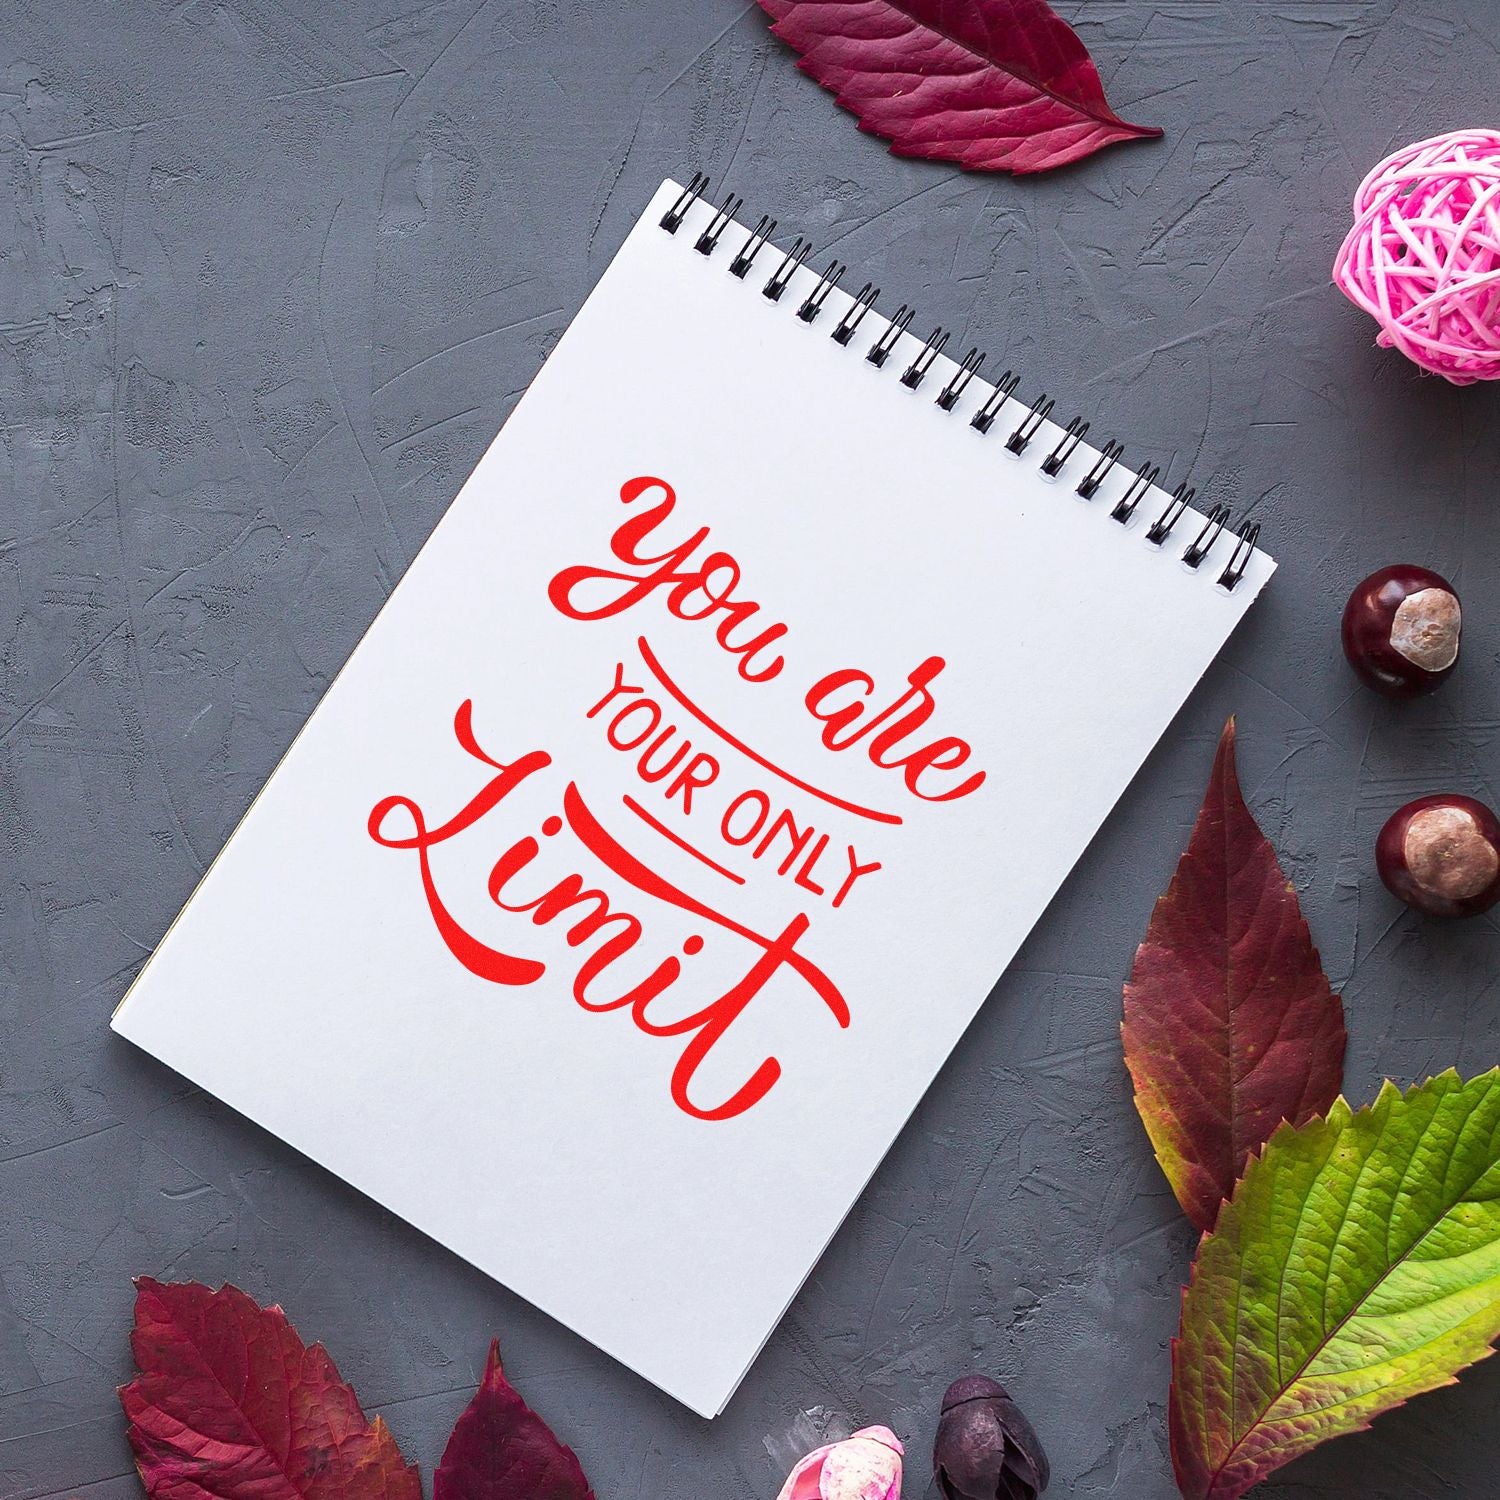 You are
YOUR ONLY
Limit